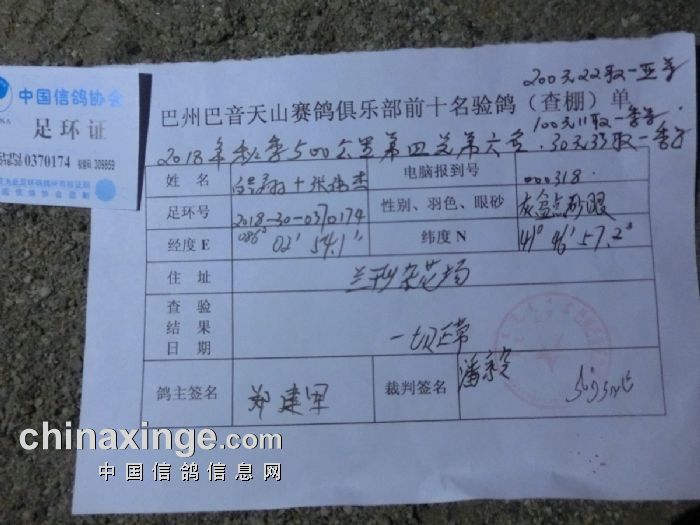 中国信鸽协会
足环证
0370174
309859
200元22取一亚号
巴州巴音天山赛鸽俱乐部前十名验鸽（查棚）单
100元11取一季号
2018年秋季500公里第四关第六名. 30元33取一季号
姓 名
电脑报到号
000318.
足环号
2018-30-0370174
性别、羽色、眼砂
灰 砂眼
经度E
086° 02′ 54.1″
纬度N
41° 46′ 57.2″
住 址
查 验 结 果 日 期
一切正常
鸽主签名
郑建军
裁判签名
chinaxinge.com
中国信鸽信息网